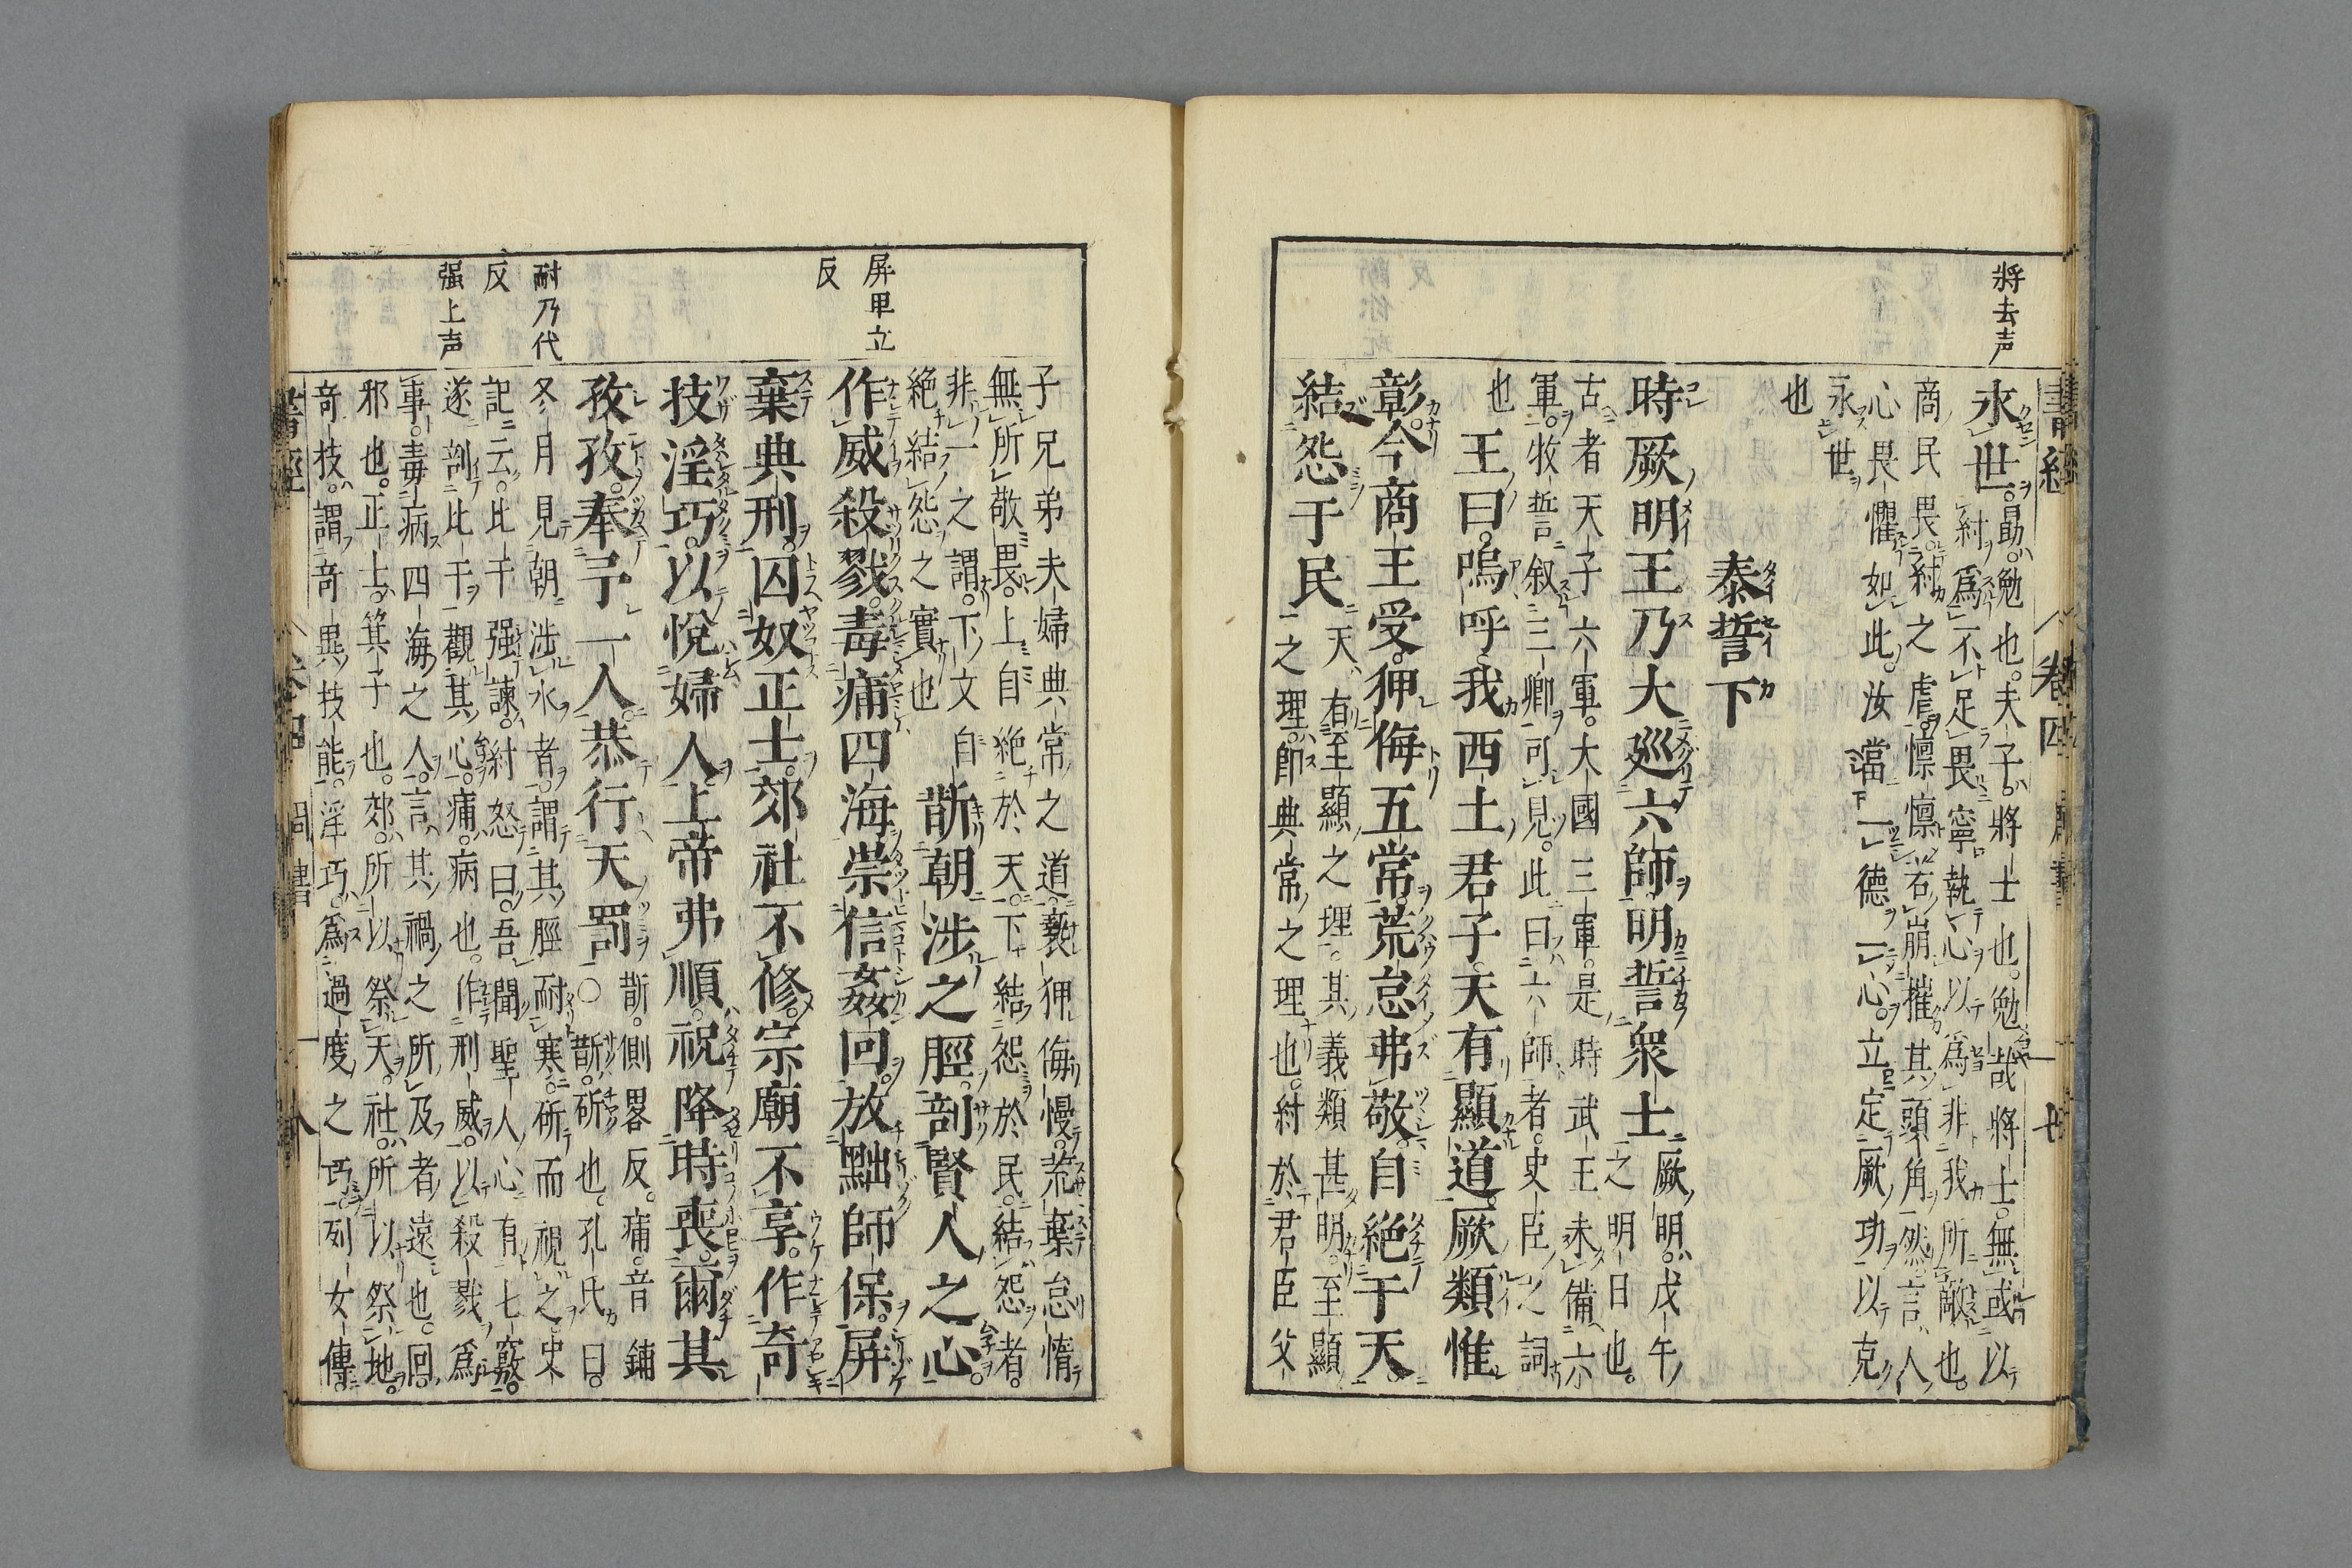 將去声
書經 卷四 周書 七
永世。勗。勉也。夫子。將士也。勉哉將士。無或以
紂爲不足畏。寧執心以爲非我所敵也。
商民畏紂之虐。懍懍若崩摧其頭角然。言人
心畏懼如此。汝當一德一心。立定厥功。以克
永世
也
泰誓下
時厥明王乃大巡六師。明誓衆士
厥明。戊午
之明日也。
古者天子六軍。大國三軍。是時武王未備六
軍。牧誓叙三卿可見。此曰六師者。史臣之詞
也
王曰。嗚呼我西土君子。天有顯道。厥類惟
彰。今商王受。狎侮五常。荒怠弗敬。自絶于天。
結怨于民
天有至顯之理。其義類甚明。至顯
之理。即典常之理也。紂於君臣父
屏甲立
反
耐乃代
反
强上声
子兄弟夫婦典常之道。褻狎侮慢。荒棄怠惰
無所敬畏。上自絶於天。下結怨於民。結怨者。
非一之謂。下文自
絶結怨之實也
斮朝涉之脛。剖賢人之心。
作威殺戮。毒痡四海。崇信姦回。放黜師保。屏
棄典刑。囚奴正士。郊社不修。宗廟不享。作奇
技淫巧。以悅婦人。上帝弗順。祝降時喪。爾其
孜孜。奉予一人。恭行天罰
斮。側畧反。痡。音鋪
○斮。斫也。孔氏曰。
冬月見朝涉水者。謂其脛耐寒。斫而視之。史
記云。比干强諫。紂怒曰。吾聞聖人心有七竅。
遂剖比干。觀其心。痡。病也。作刑威。以殺戮爲
事。毒病四海之人。言其禍之所及者遠也。回。
邪也。正士。箕子也。郊。所以祭天。社。所以祭地。
奇技。謂奇異技能。淫巧。爲過度之巧。列女傳。
書經 卷四 周書 八